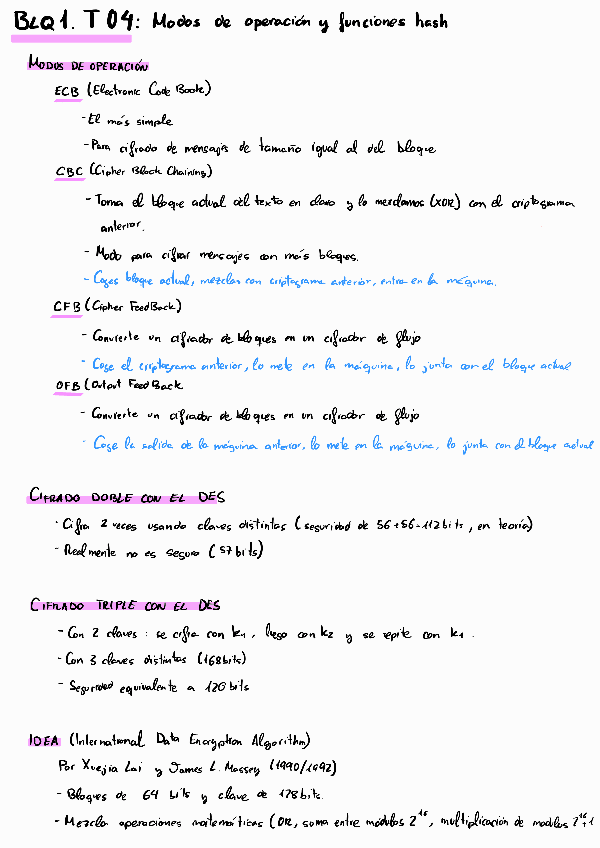 BLQ1. T04: Modos de operación y funciones hash
MODOS DE OPERACIÓN
ECB (Electronic Code Book)
- El más simple
- Para cifrado de mensajes de tamaño igual al del bloque
CBC (Cipher Block Chaining)
- Toma el bloque actual del texto en claro y lo mezclamos (XOR) con el criptograma
anterior.
- Modo para cifrar mensajes con más bloques.
- Coges bloque actual, mezclas con criptograma anterior, entra en la máquina.
CFB (Cipher FeedBack)
- Convierte un cifrador de bloques en un cifrador de flujo
- Coge el criptograma anterior, lo mete en la máquina, lo junta con el bloque actual
OFB (Output FeedBack
- Convierte un cifrador de bloques en un cifrador de flujo
- Coge la salida de la máquina anterior, lo mete en la máquina, lo junta con el bloque actual
CIFRADO DOBLE CON EL DES
- Cifra 2 veces usando claves distintas (seguridad de 56+56=112 bits, en teoría)
- Realmente no es seguro (57 bits)
CIFRADO TRIPLE CON EL DES
- Con 2 claves: se cifra con k1, luego con k2 y se repite con k1.
- Con 3 claves distintas (168bits)
- Seguridad equivalente a 120 bits
IDEA (International Data Encryption Algorithm)
Por Xuejia Lai y James L. Massey (1990/1992)
- Bloques de 64 bits y clave de 128bits.
- Mezcla operaciones matemáticas (OR, suma entre módulos 2^16, multiplicación de modulos 2^16+1